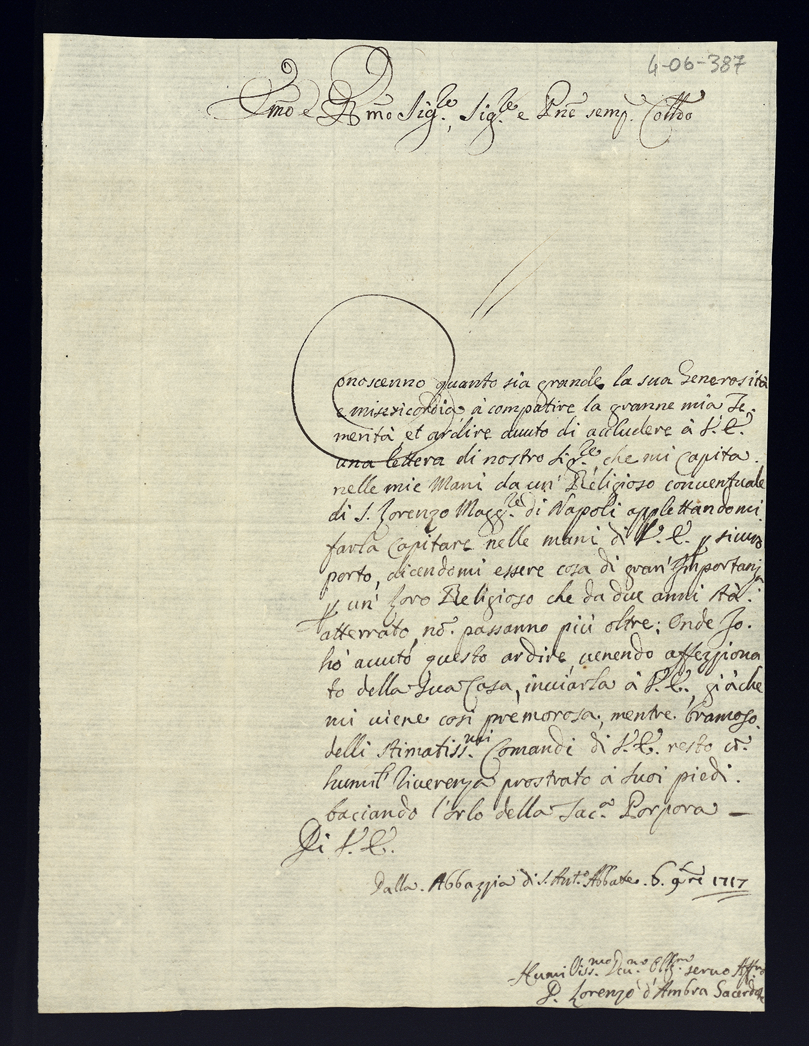 4-06-387
Emo e Rmo Sig.re, Sig.re e Prne semp. Collmo
Conoscenno quanto sia grande la sua Generosità
e misericordia à compatire la granne mia Te-
merità, et ardire auuto di accludere à V. E.
una lettera di nostro Sig.re che mi capita
nelle mie Mani da un' Religioso conventuale
di S. Lorenzo Magg.re di Napoli applettandomi
farla capitare nelle mani di V. E. p sicuro
porto, dicendomi essere cosa di gran' Importanza
p un' loro Religioso che da due anni stà
atterrato, nō. passanno più oltre: Onde Io.
hò auuto questo ardire, uenendo affezziona
to della Sua Casa, inuiarla à V. E., già che
mi uiene così premorosa, mentre bramoso
delli stimatiss.mi Comandi di V. E. resto cō.
humil riuerenza prostrato à suoi piedi
baciando l'orlo della Sac.a Porpora —
Di V. E.
Dalla Abbazzia di S. Ant.o Abbate. 6. 9bre 1717
Humiliss.mo Deu.mo Obb.mo seruo Aff.mo
P. Lorenzo d'Ambra Sacerdote